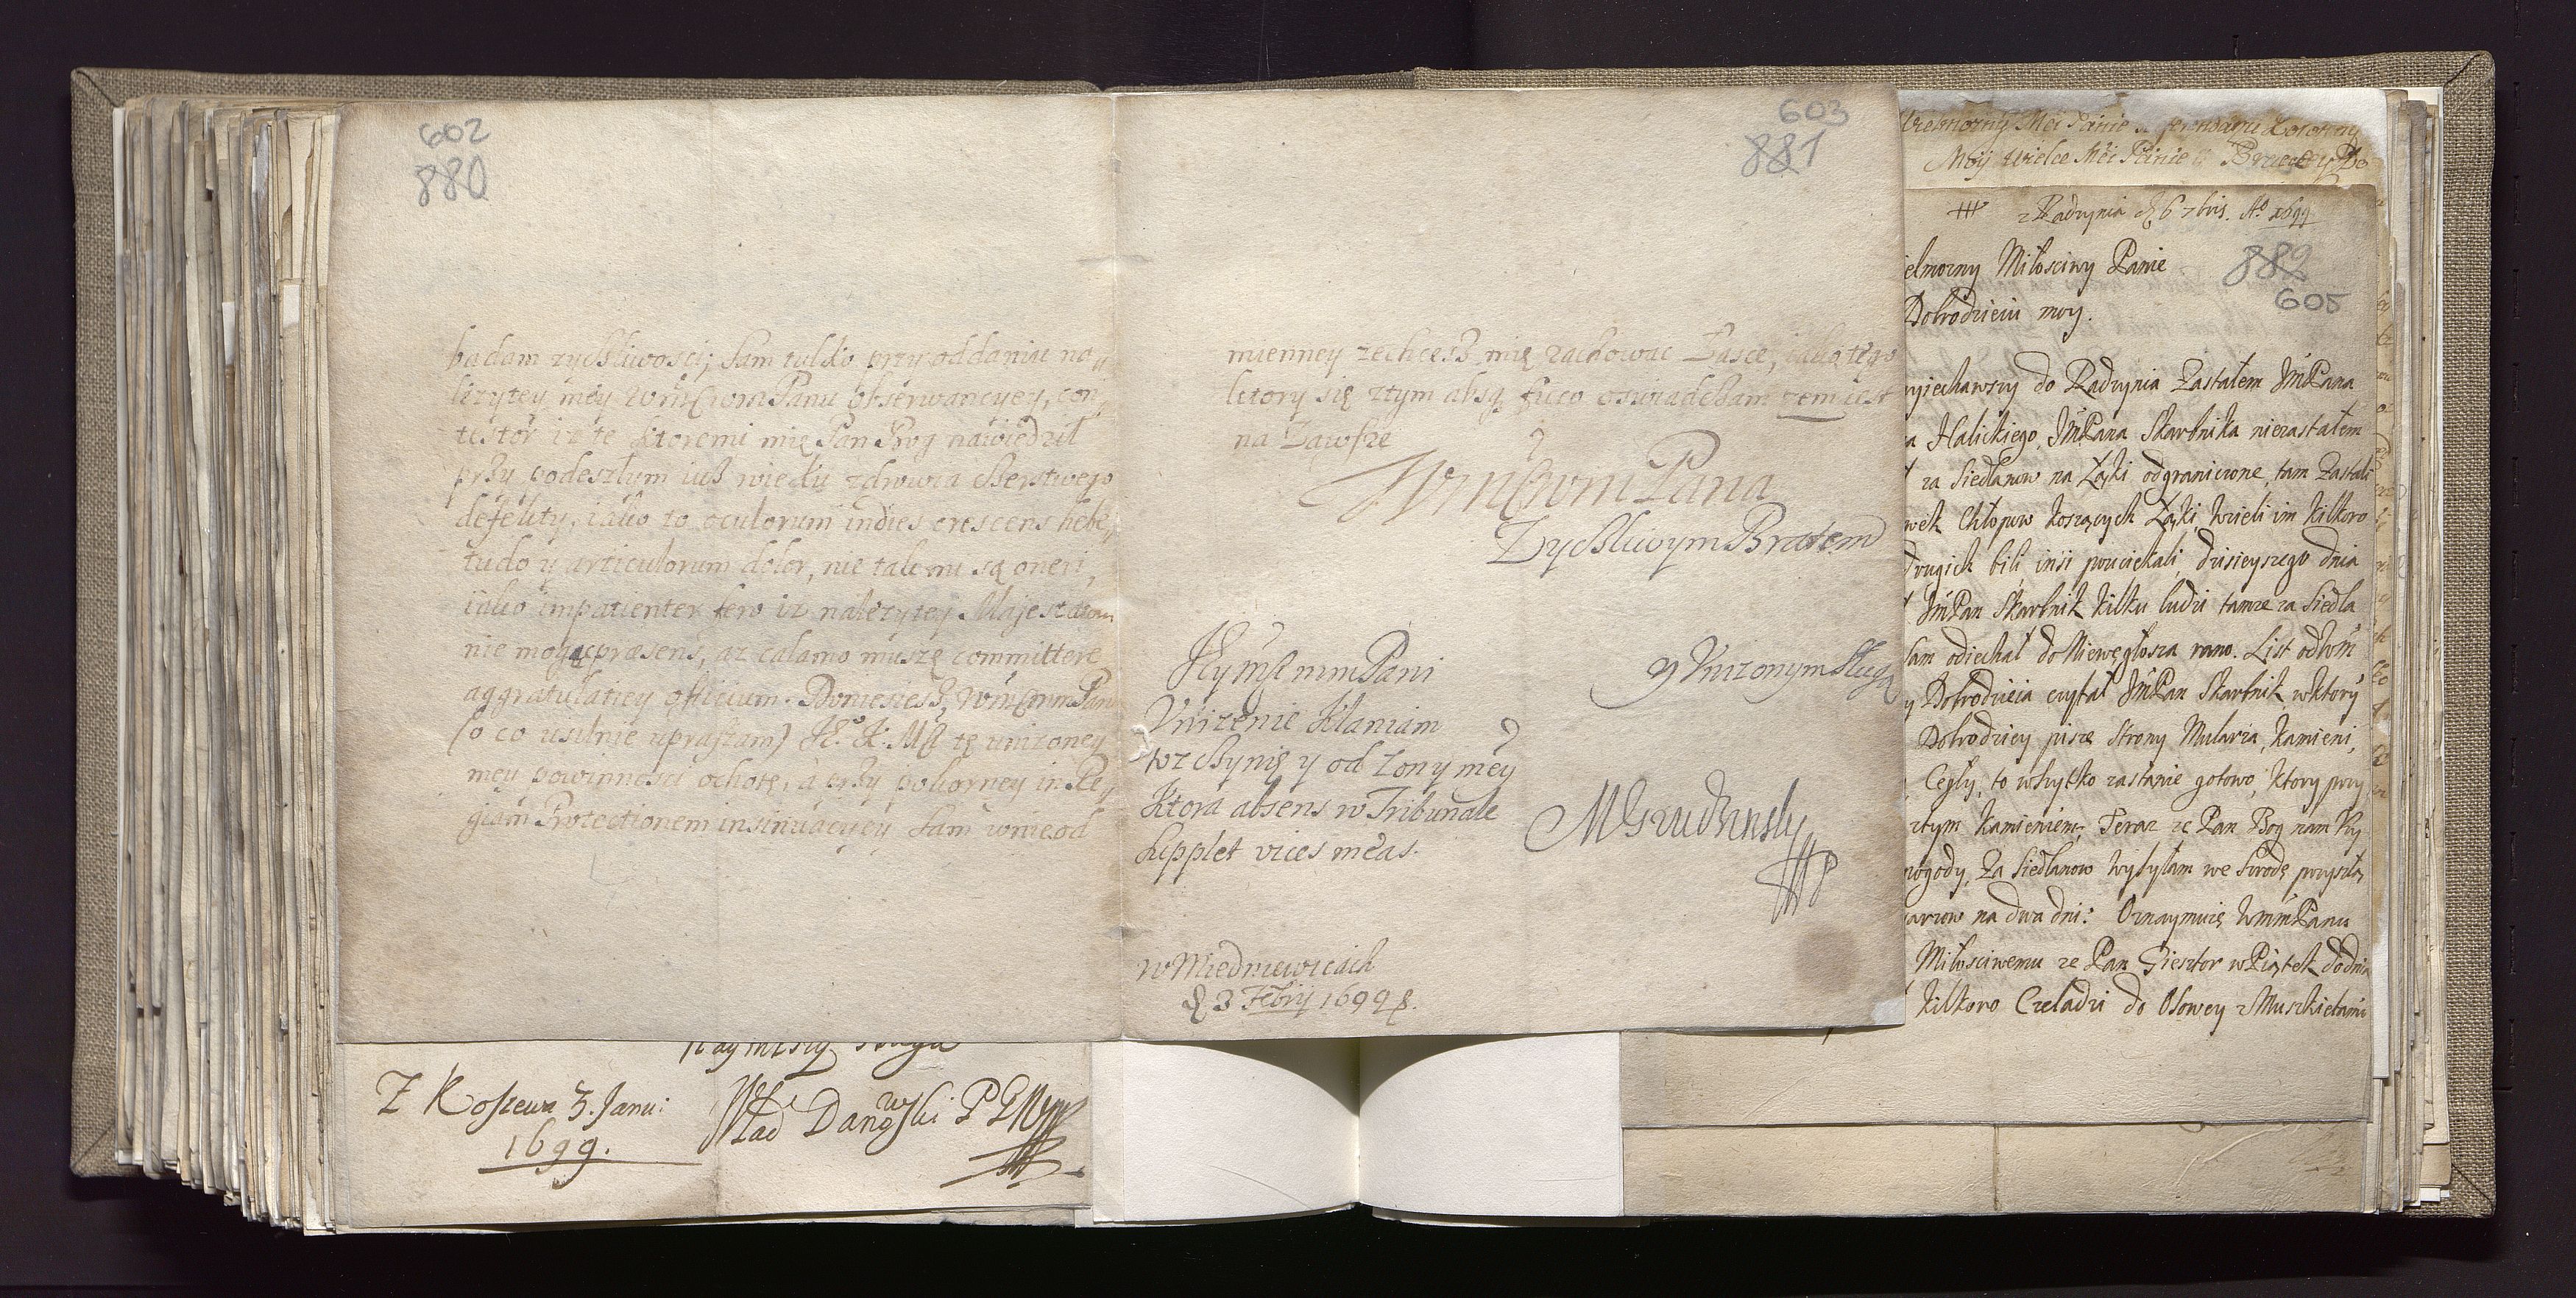 602
880
badam zyczliwosci; Sam tylko przy oddaniu na„
lezytey mey WmmPanu obserwancyey, con„
testor iz te ktoremi mię Pan Bog nawiedził
przy podeszłym iusz wieku zdrowia czerstwego
defekty, iako to oculorum indies crescens hebe„
tudo y articulorum dolor, nie tak mi są oneri,
iako impatienter fero iz nalezytey Majestatowi
nie mogąc præsens, az calamo muszę committere
aggratulatiey officium. Doniesiesz, WmmPan
(o co usilnie upraszam) J. K. Mci tę unizoney
mey powinnosci ochotę, a przy pokorney in Re„
giam Protectionem insinuacyey Sam w nieod
603
881
mienney zechcesz mię zachowac Łasce, iako tego
ktory się z tym absq fuco oswiadczam zem iest
na Zawsze
WmmPana
Zyczliwym Bratem
y Unizonym Sługą
JeyMci mm Pani
Unizenie Kłaniam
to z czynię y od Zony mey
Ktora absens w Tribunale
supplet vices meas.
MGrudzinsky
w Miedniewicach
d 3 Febrij 1699
Z Koszewa 3. Janu:
1699.
Wład Danowski
Mci Panie
Moy Wielce Mci Panie
z Radzynia d 6 7bris. Ao 1699
889
605
elmozny Miłosciwy Panie
Dobrodzieiu moy.
yiechawszy do Radzynia Zastałem JmPana
a Halickiego, JmPana Skarbnika niezastałem
za Siedlanow na Łąki odgraniczone, tam Zastali
wek Chłopow koszących Łąki, wzieli im kilkoro
drugich bili insi pouciekali, dzisieyszego dnia
JmPan Skarbnik kilku ludzi tamze za Siedla
sam odiechał do Niewęgłosza rano. List od Wm
y Dobrodzieia czytał JmPan Skarbnik, w ktory
Dobrodziey pisze strony Mularza, Kamieni,
Cegły, to wszytko zastanie gotowo, ktory przy
ztym Kamieniem; Teraz ze Pan Bog nam
pogody, Za Siedlanow wysyłam we srodę przyszłą
na dwa dni: Oznaymuię WmmPanu
Miłosciwemu ze Pan Giesztor w Piątek dodnia
kilkoro Czeladzi do Osowey z Muszkietami